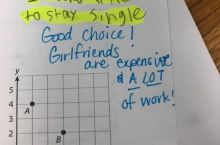 to stay single
Good choice!
Girlfriends
are expensive
& A LOT
of work!
y
5
4
3
2
A
B